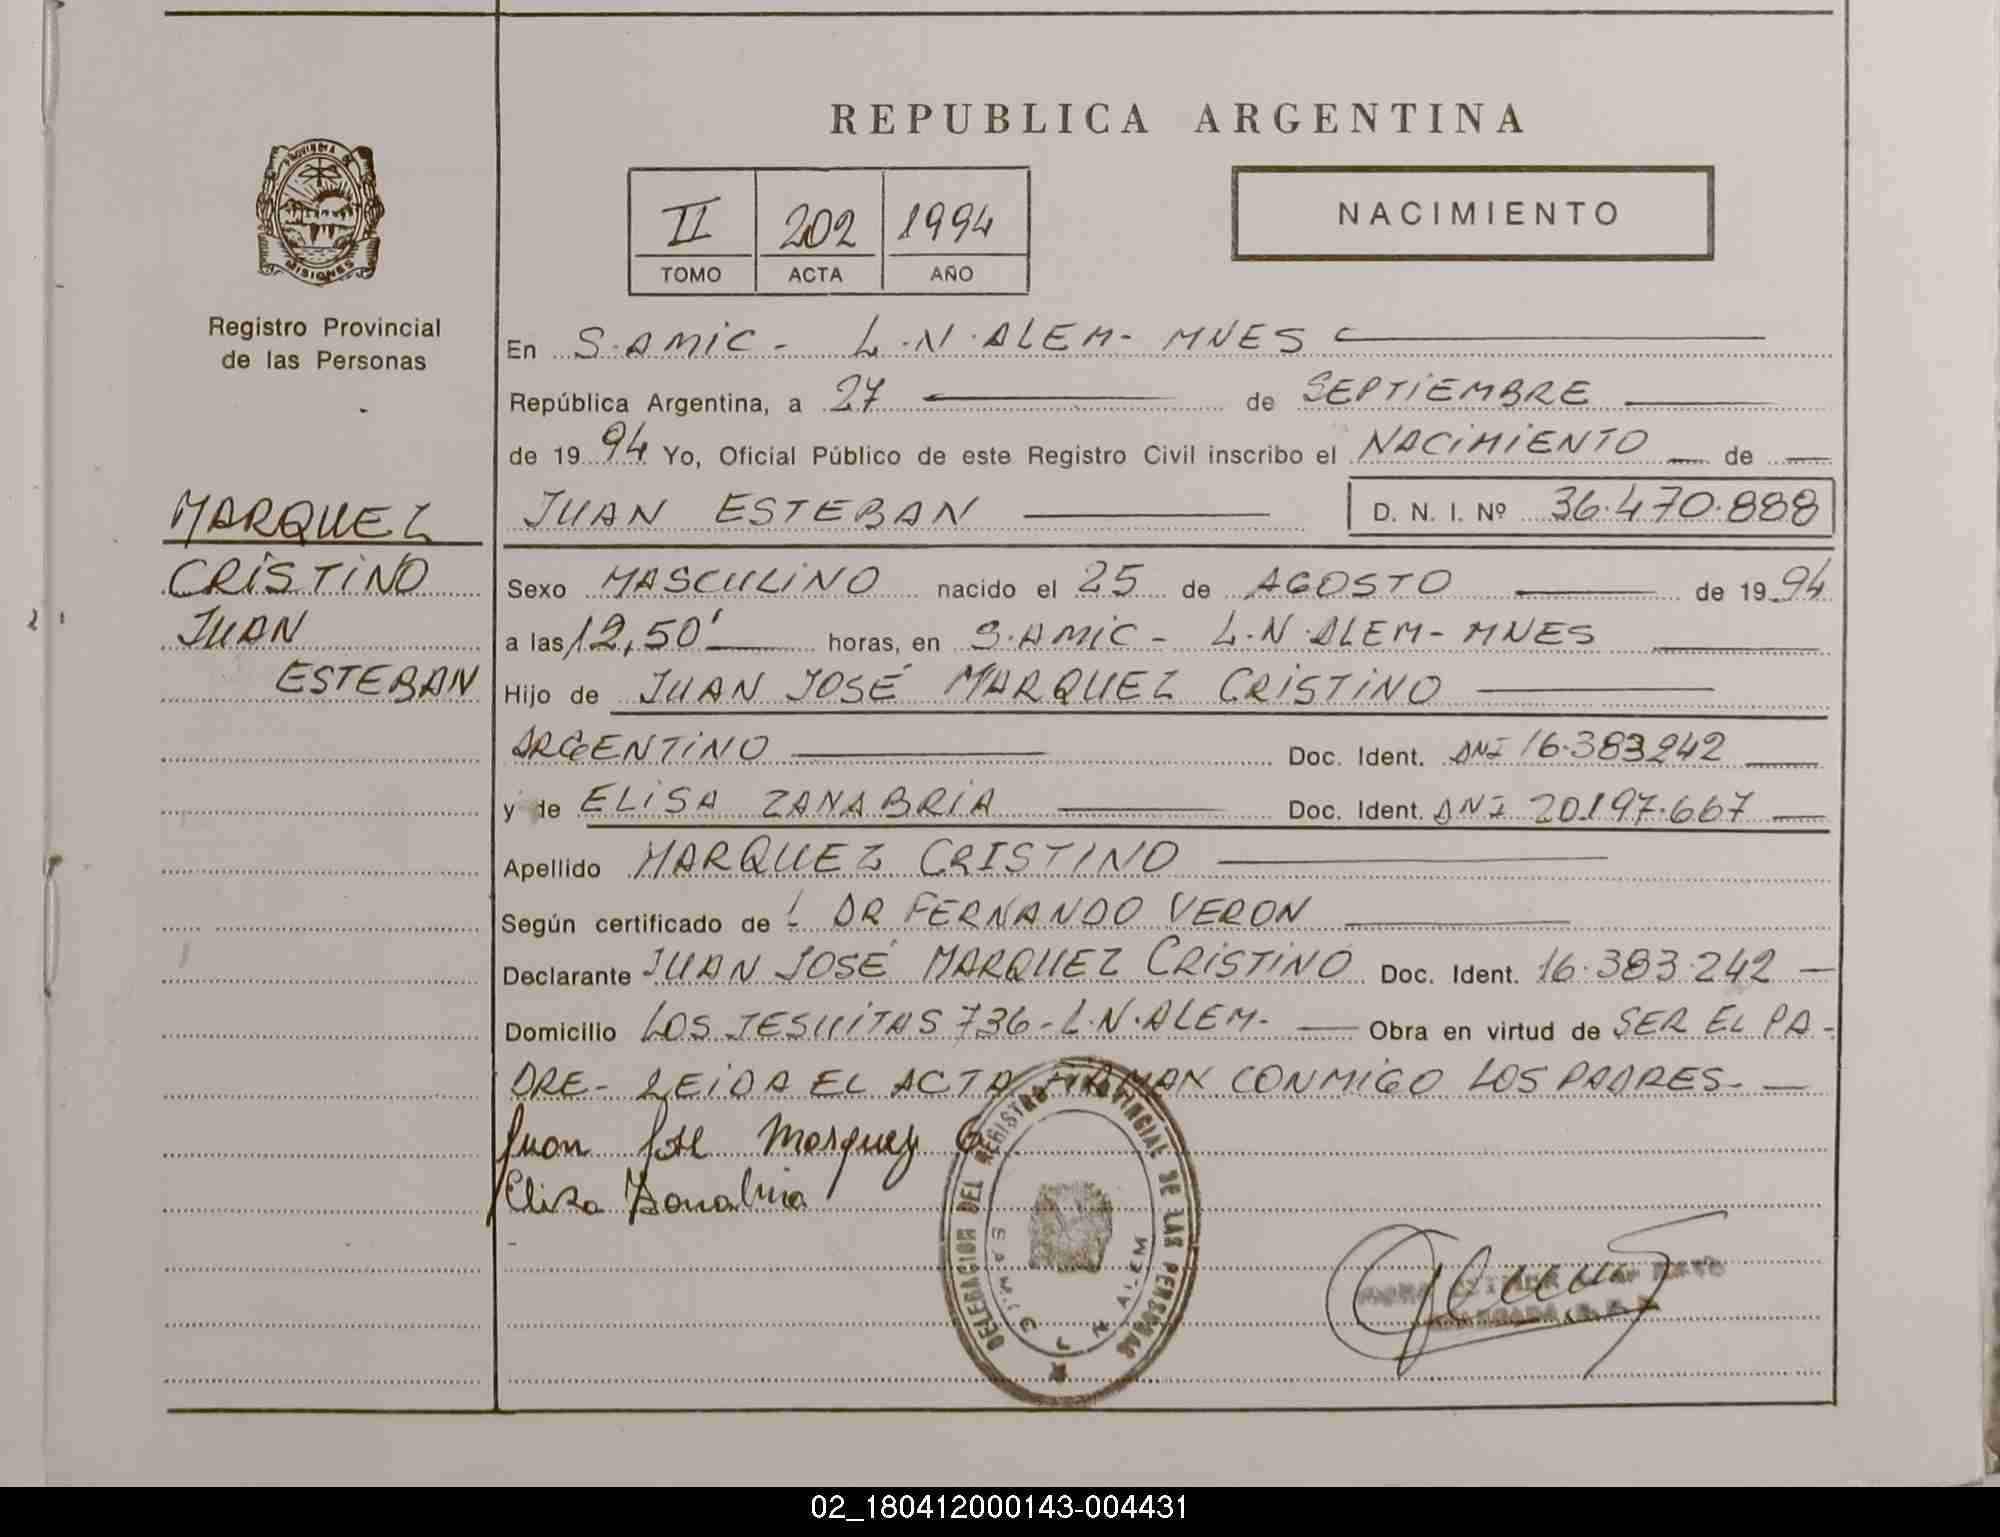 REPUBLICA ARGENTINA
PROVINCIA DE
MISIONES
Registro Provincial
de las Personas
II 202 1994
TOMO ACTA AÑO
NACIMIENTO
En S. AMIC - L.N. ALEM - MNES
República Argentina, a 27 de SEPTIEMBRE
de 1994 Yo, Oficial Público de este Registro Civil inscribo el NACIMIENTO de
JUAN ESTEBAN D. N. I. Nº 36.470.888
MARQUEZ
CRISTINO
JUAN
ESTEBAN
Sexo MASCULINO nacido el 25 de AGOSTO de 1994
a las 12,50' horas, en S. AMIC - L.N. ALEM - MNES
Hijo de JUAN JOSÉ MARQUEZ CRISTINO
ARGENTINO Doc. Ident. DNI 16.383242
y de ELISA ZANABRIA Doc. Ident. DNI 20197.667
Apellido MARQUEZ CRISTINO
Según certificado de DR FERNANDO VERON
Declarante JUAN JOSÉ MARQUEZ CRISTINO Doc. Ident. 16.383.242
Domicilio LOS JESUITAS 736 - L.N. ALEM - Obra en virtud de SER EL PA-
DRE - LEIDA EL ACTA FIRMAN CONMIGO LOS PADRES -
Juan José Marquez C
Elisa Zanabria
DELEGACION DEL REGISTRO PROVINCIAL DE LAS PERSONAS
L N ALEM
02_180412000143-004431